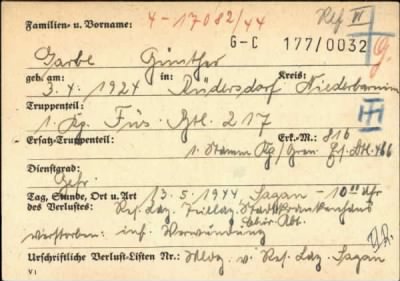 Familien- u. Vorname: 4-17082/44 Ref VI
G-C 177/0032 G.
Garbe Günther
geb. am: in: Kreis:
3. 4. 1924 Rüdersdorf Niederbarnim
Truppenteil:
1. Kp. Füs. Btl. 217
Ersatz-Truppenteil: Erk.-M.: 816
1. Stamm Kp/Gren. Ers. Btl. 466
Dienstgrad:
Gefr.
Tag, Stunde, Ort u. Art 13. 5. 1944 Sagan - 10 00 Uhr
des Verlustes: Res. Laz. Stadtkrankenhaus
chir. Abt.
verstorben: inf. Verwundung
Urschriftliche Verlust-Listen Nr.: Mldg. v. Res. Laz. Sagan
V 1